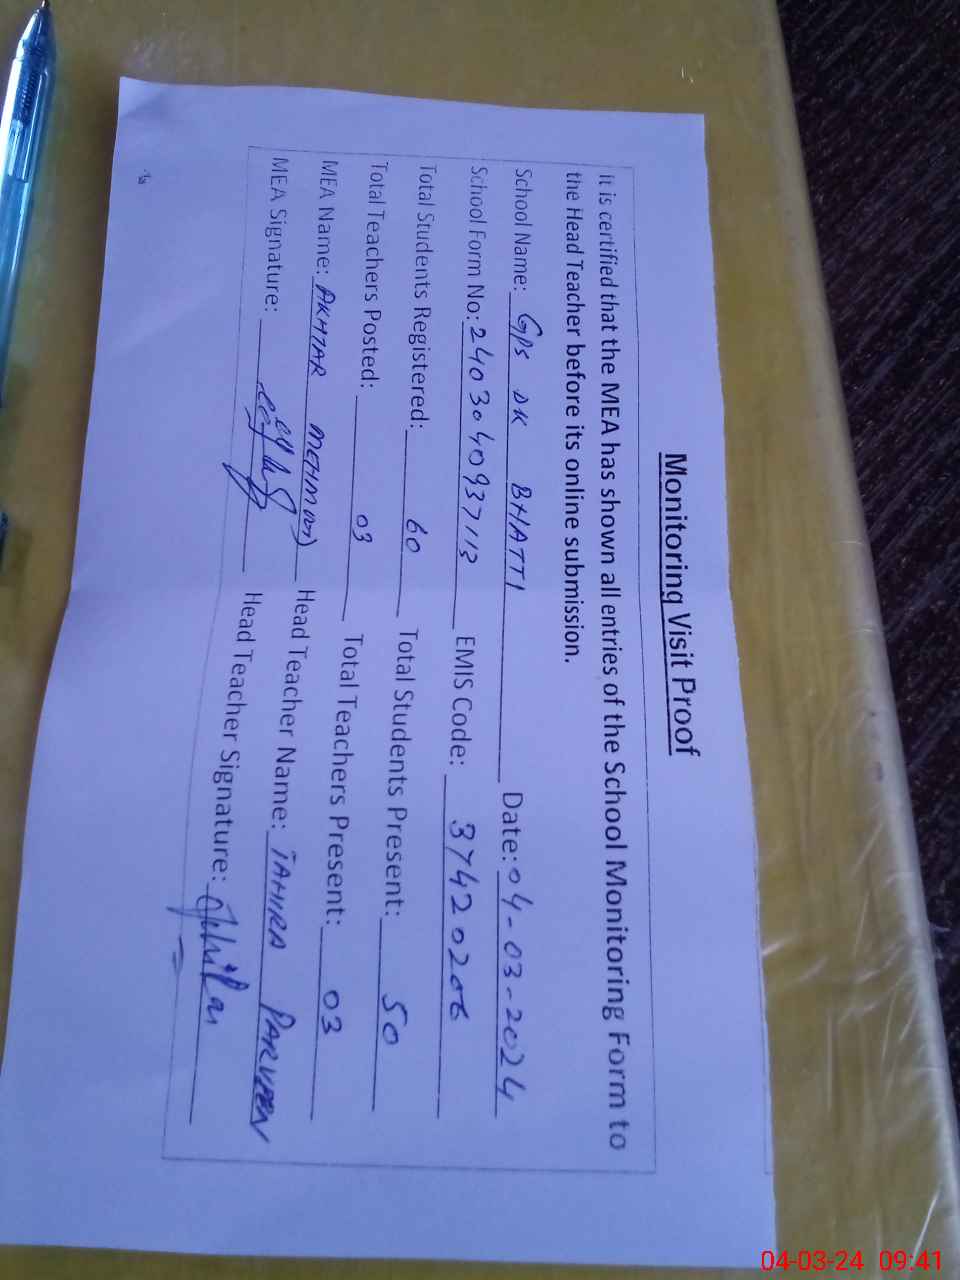 Monitoring Visit Proof
it is certified that the MEA has shown all entries of the School Monitoring Form to
the Head Teacher before its online submission.
School Name: GPS DK BHATTI Date: 04-03-2024
School Form No: 2403040937113 EMIS Code: 37420206
Total Students Registered: 60 Total Students Present: 50
Total Teachers Posted: 03 Total Teachers Present: 03
MEA Name: AKHTAR MEHMOOD Head Teacher Name: TAHIRA PARVEEN
MEA Signature: Head Teacher Signature:
04-03-24 09:41